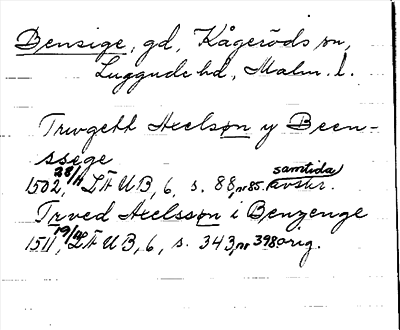 Bensige, gd, Kågeröds sn,
Luggude hd, Malm. l.
Truvgett Axelsøn y Been-
ssege
1502 28/11, LÄUB, 6, s. 88, nr 85. samtida avskr.
Trved Axelssøn i Benzenge
1511, LÄUB, 6, s. 343, nr 398 orig.